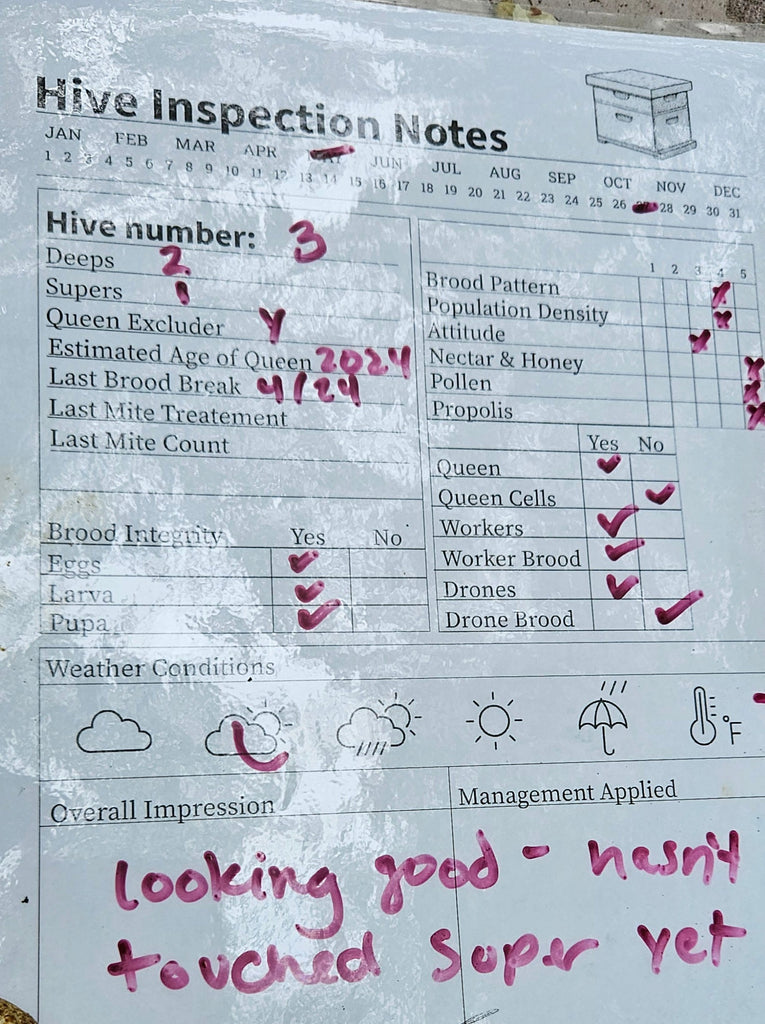 Hive Inspection Notes
JAN FEB MAR APR MAY JUN JUL AUG SEP OCT NOV DEC
1 2 3 4 5 6 7 8 9 10 11 12 13 14 15 16 17 18 19 20 21 22 23 24 25 26 27 28 29 30 31
Hive number: 3
Deeps 2
Supers 1
Queen Excluder Y
Estimated Age of Queen 2024
Last Brood Break 4/24
Last Mite Treatement
Last Mite Count
1 2 3 4 5
Brood Pattern x
Population Density x
Attitude x
Nectar & Honey x
Pollen x
Propolis x
Yes No
Queen ✓
Queen Cells ✓
Workers ✓
Worker Brood ✓
Drones ✓
Drone Brood ✓
Brood Integrity Yes No
Eggs ✓
Larva ✓
Pupa ✓
Weather Conditions
°F
Overall Impression
Management Applied
looking good - hasn't
touched super yet